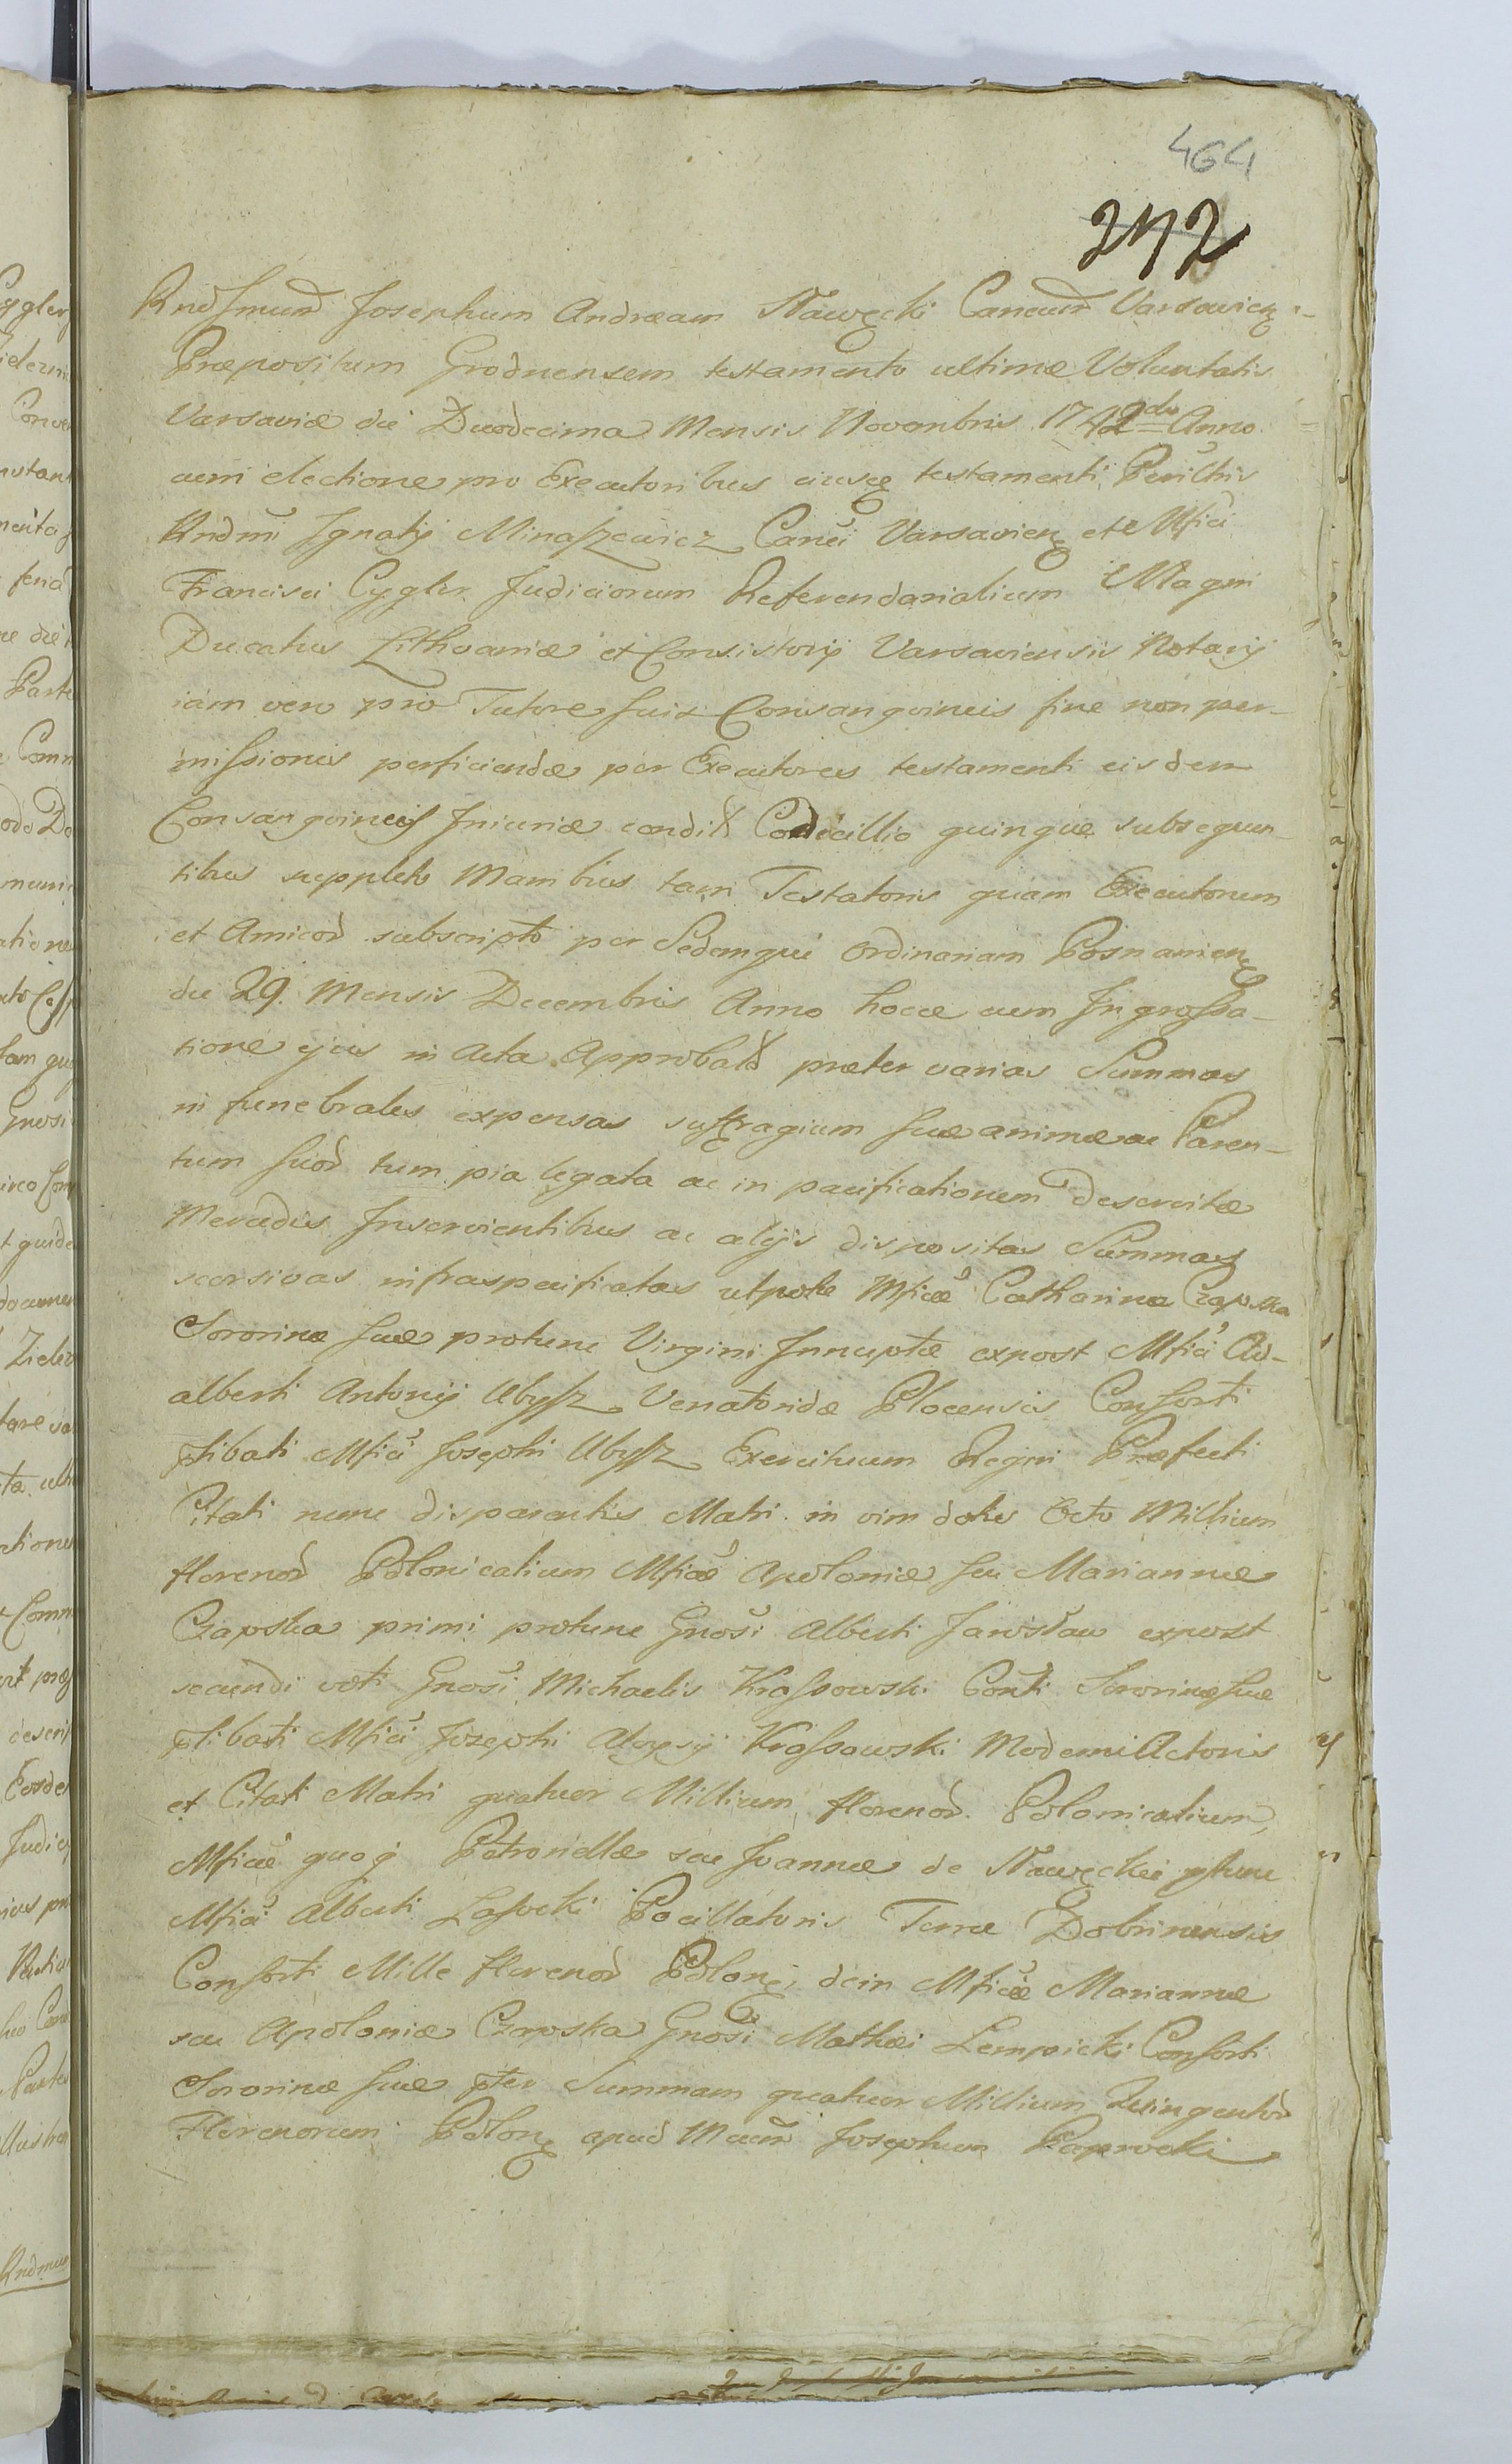 464
242
Rndsmum Josephum Andream Nawęcki Cancum Varsavien
Præpositum Grodnensem testamento ultimæ Voluntatis
Varsaviæ die Duodecima Mensis Novembris 1742do Anno
cum electione pro Executoribus eiusq testamenti Perillris
Rndmi Ignatij Minaszewicz Canci Varsavien et Mfici
Francisci Cygler Judiciorum Referendarialium Magni
Ducatus Lithvaniæ et Consistorij Varsaviensis Notarij
iam vero pro Tutore suis Consanguineis sine non per-
missionis perficiendæ per Executores testamenti eisdem
Consanguineis Injuriæ condito Codicillis quinque subsequen-
tibus suppleto Manibus tam Testatoris quam Executorum
et Amicor subscripto per Sedemque Ordinariam Posnanien
die 29. Mensis Decembris Anno hocce cum Ingrossa-
tione ejus in Acta Approbato præter varias Summas
in funebrales expensas suffragium suæ animæ ac Paren-
tum suor tum pia legata ac in pacificationem deservitæ
Mercedis Inservientibus ac alijs dispositas Summas
seorsivas infraspecificatas utpote Mficæ Catharinæ Czapska
Sororinæ suæ protunc Virgini Innuptæ expost Mfici Ad-
alberti Antonij Ubysz Venatoridæ Plocensis Consorti
ptibati Mfici Josephi Ubysz Exercituum Regni Præfecti
Citati nunc disparentis Matri in vim dotis Octo Millium
florenor Polonicalium Mficæ Apoloniæ seu Mariannæ
Czapska primi protunc Gnosi Alberti Jarosław expost
secundi voti Gnosi Michaelis Krassowski Conti Sororinæ suæ
ptibati Mfici Josephi Aloysij Krassowski Moderni Actoris
et Citati Matri quatuor Millium florenor Polonicalium,
Mficæ quoq Petronellæ seu Joannæ de Nawęckie ptunc
Mfici Alberti Lasocki Pocillatoris Terræ Dobrinensis
Consorti Mille florenor Polon, dein Mficæ Mariannæ
seu Apoloniæ Czapska Gnosi Mathæi Lempicki Consorti
Sororinæ suæ pter Summam quatuor Millium Quingentor
Florenorum Polon apud Mcum Josephum Paprocki